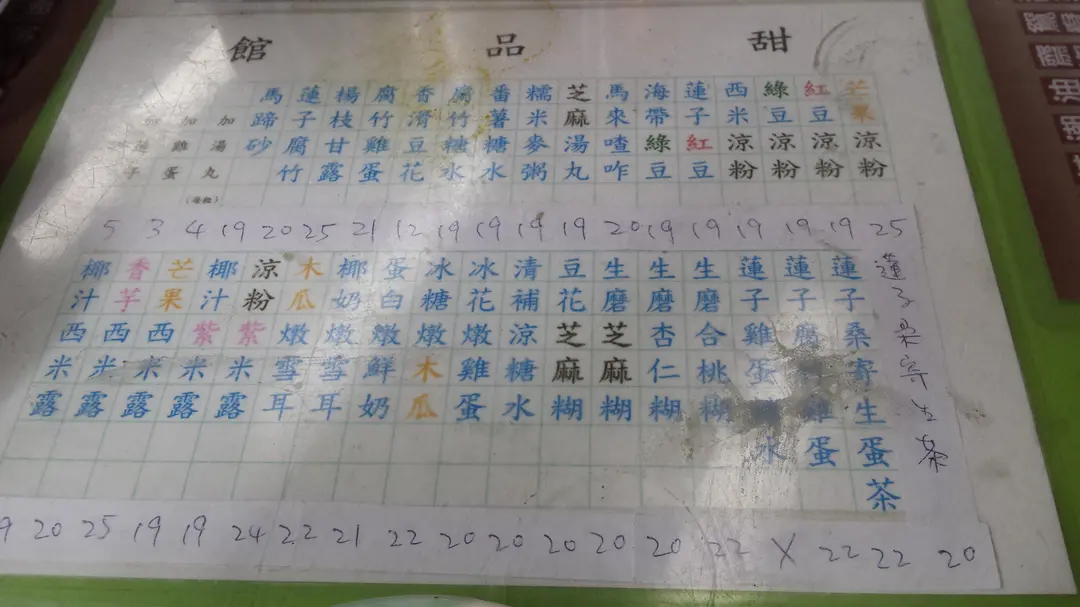 甜品館
芒果涼粉
紅豆涼粉
綠豆涼粉
西米涼粉
蓮子紅豆
海帶綠豆
馬來喳咋
芝麻湯丸
糯米麥粥
番薯糖水
腐竹糖水
香滑豆花
腐竹雞蛋
楊枝甘露
蓮子腐竹
馬蹄砂
加湯丸
加雞蛋
(每粒)
加蓮子
25 19 19 19 19 19 20 19 19 19 19 12 21 25 20 19 4 3 5
蓮子桑寄生茶
蓮子桑寄生蛋茶
蓮子腐雞蛋
蓮子雞蛋水
生磨合桃糊
生磨杏仁糊
生磨芝麻糊
豆花芝麻糊
清補涼糖水
冰花燉雞蛋
冰糖燉木瓜
蛋白燉鮮奶
椰奶燉雪耳
木瓜燉雪耳
涼粉紫米露
椰汁紫米露
芒果西米露
香芋西米露
椰汁西米露
20 22 22 X 22 20 20 20 20 20 22 21 22 24 19 19 25 20